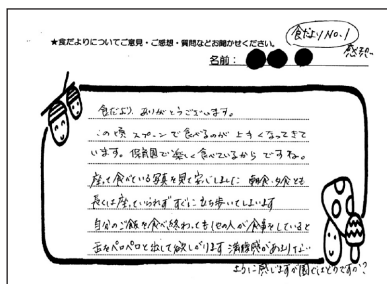 食だよりNo.1
感想
★食だよりについてご意見・ご感想・質問などお聞かせください。
名前:
食だより、ありがとうございます。
この頃スプーンで食べるのが上手くなってきて
います。保育園で楽しく食べているからですね。
座って食べている写真を見て安心しました。朝食・夕食とも
長くは座っていられず すぐに立ち歩いてしまいます
自分のご飯を食べ終わってもほかの人が食事をしていると
舌をペロペロと出して欲しがります 満腹感があまりない
ように感じますが園ではどうですか?